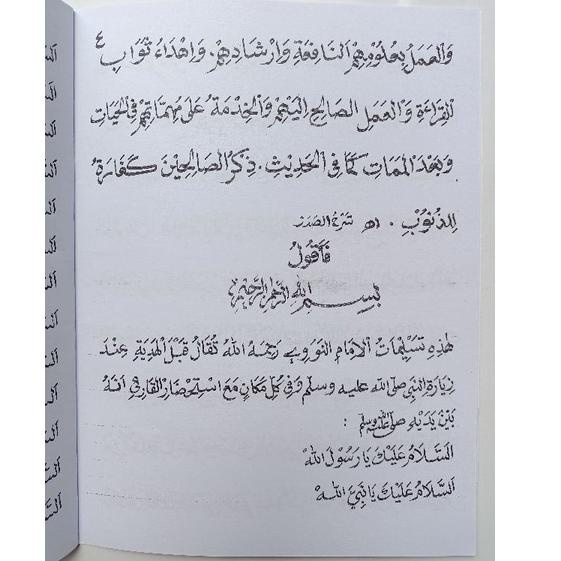 ٤
وَالْعَمَلُ بِعُلُوْمِهِمْ النَّافِعَةِ وَاِرْشَادِهِمْ. وَاِهْدَاءُ ثَوَابِ
الْقِرَاءَةِ وَالْعَمَلِ الصَّالِحِ اِلَيْهِمْ وَالْخِدْمَةُ عَلَى مُهِمَّاتِهِمْ فِى الْحَيَاتِ
وَبَعْدَ الْمَمَاتِ كَمَا فِى الْحَدِيْثِ. ذِكْرُ الصَّالِحِيْنَ كَفَّارَةٌ
لِلذُّنُوْبِ. اه شَرْحُ الصُّدُرْ
فَاَقُوْلُ
بِسْمِ اللهِ الرَّحْمٰنِ الرَّحِيْمِ
هٰذِهِ تَسْلِيْمَاتُ الْاِمَامِ النَّوَوِيِ رَحِمَهُ اللهُ تُقَالُ قَبْلَ الْهَدِيَةِ عِنْدَ
زِيَارَةِ النَّبِيِ صلى الله عليه وسلم وَفِى كُلِّ مَكَانٍ مَعَ اسْتِحْضَارِ الْقَارِئِ اَنَّهُ
بَيْنَ يَدَيْهِ صلى الله عليه وسلم :
اَلسَّلَامُ عَلَيْكَ يَا رَسُوْلَ اللهْ
اَلسَّلَامُ عَلَيْكَ يَا نَبِيَّ اللهْ